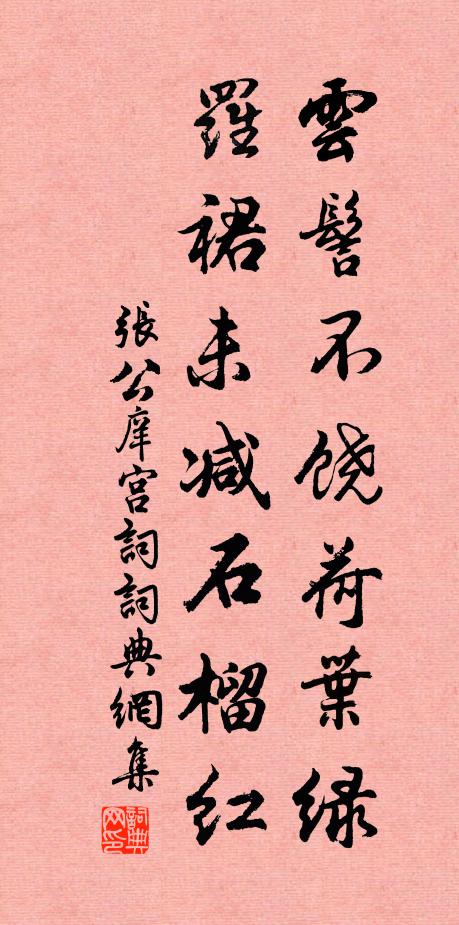 雲髻不饶荷葉绿
羅裙未减石榴红
張公庠宫詞詞典網集
詞典
网印